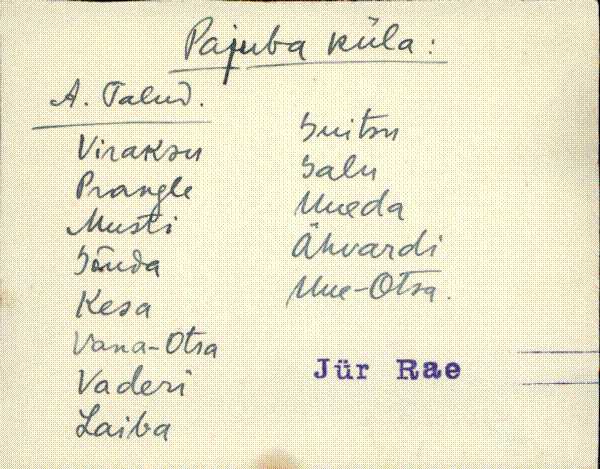 Pajuba küla:
A. Talud.
Viraksu
Prangle
Musti
Sõuda
Kesa
Vana-Otsa
Vaderi
Laiba
Suitsu
Salu
Uueda
Ähvardi
Uue-Otsa.
Jür Rae